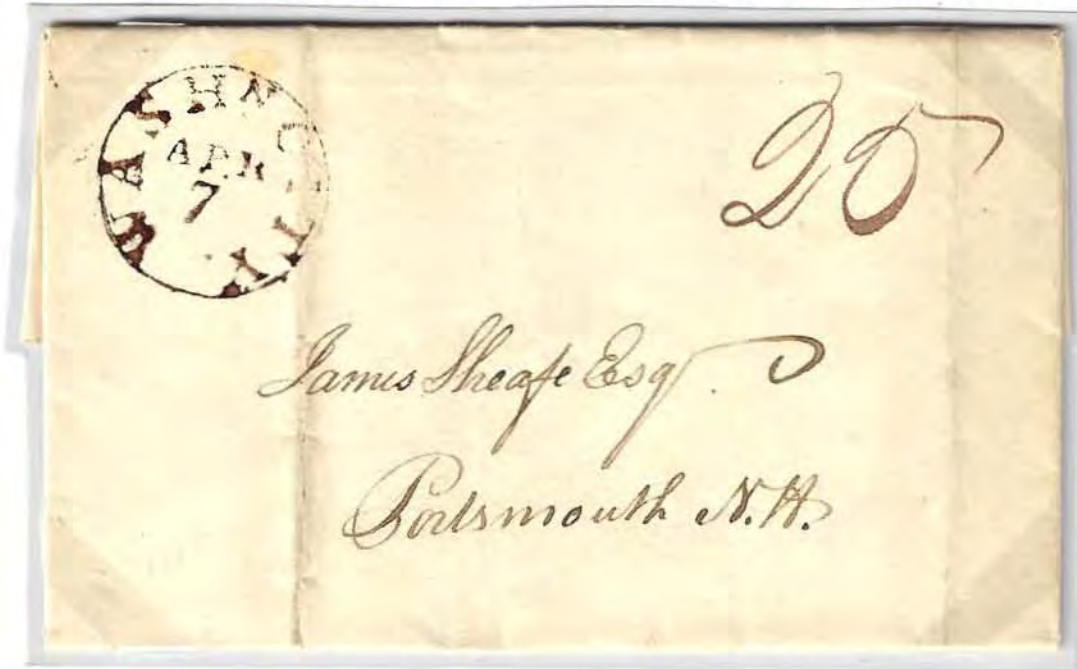 WASHN CITY
APR
7
25
James Sheafe Esqr
Portsmouth N.H.